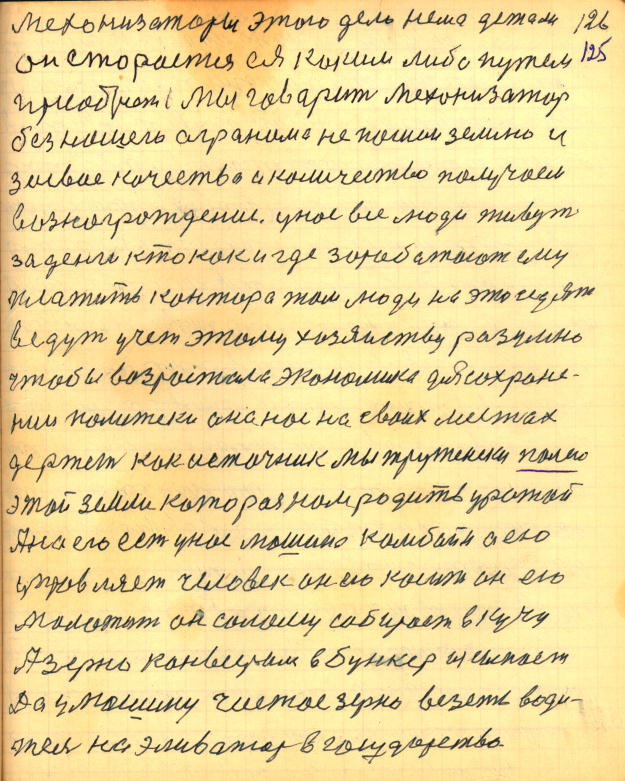 механизаторы этого дель нема детали 126
он старается ся каким либо путем 125
приобрет мы говарит механизатор
без нашего агранома не пошои землю и
за евое качества и количество получаем
вознограждение. унас все люди живут
за денги кто как и где заработоит ему
платить кантора там люди на это седят
ведут учет этому хозяйству разумно
чтобы возростала экономика для сохране-
нии политеки она нас на своих местах
держет как источник мы труженеки полею
этой земли которая нам родить урожай
А на его ест унас машина камбайн а ею
управляет человек он ею косит он ею
молотит он солому собирает в кучу
А зерно канвеером в бункер и сыпает
Да у машину чистое зерно везеть води-
тел на эливатор в государство